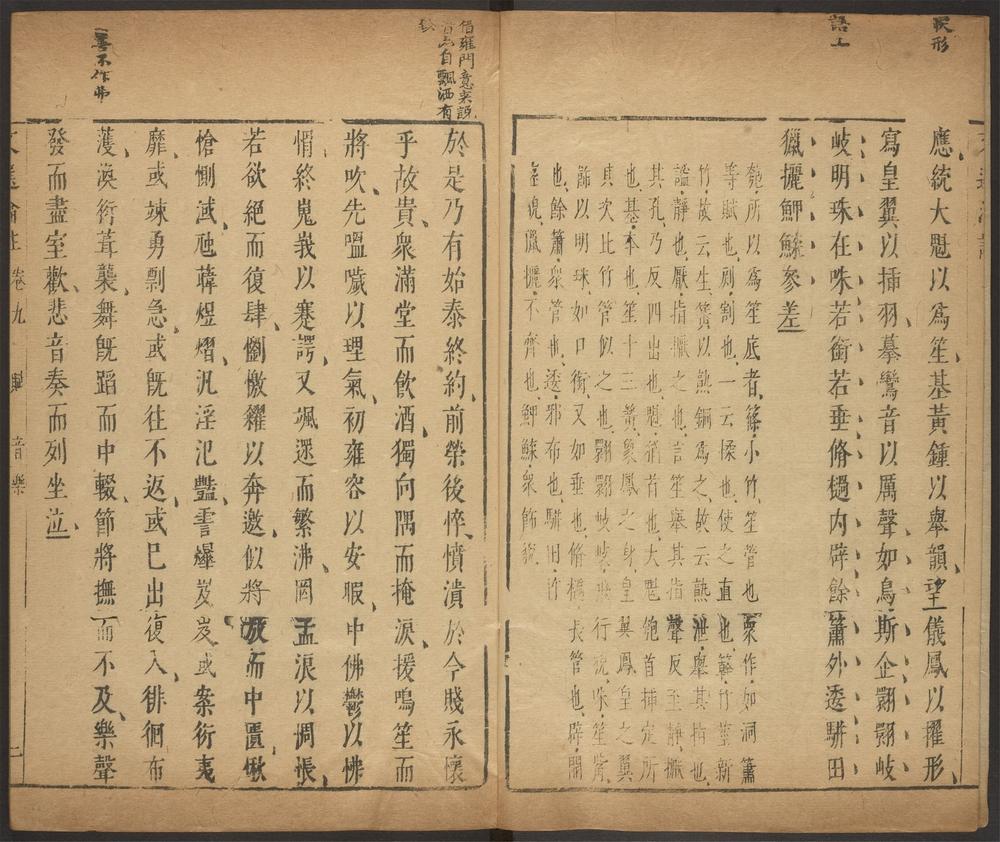 狀形
語工
應統大魁以為笙基黃鍾以舉韻望儀鳳以擢形
寫皇翼以插羽摹鸞音以厲聲如鳥斯企翾翾岐
岐明珠在咮若銜若垂脩檛內辟餘簫外逶駢田
獵攦鯽鰈參差
匏所以為笙底者篠小竹笙管也栗作如洞簫
等賦也剡割也一云揉也使之直也簳竹莖新
竹故云生簧以熟銅為之故云熟泄舉其指也
謐靜也厭指擫之也言笙舉其指聲反至靜擫
其孔乃反四出也魁猶首也大魁匏首插定所
也基本也笙十三簧象鳳之身皇翼鳳皇之翼
其次比竹管似之也翾翾岐岐飛行貌咮笙嘴
飾以明珠如口銜又如垂也脩檛長管也辟開
也餘簫衆管也逶邪布也駢田竹
差貌獵攦不齊也鯽鰈衆飾貌
借雍門意來說
自飄洒有
於是乃有始泰終約前榮後悴憤潰於今賤永懷
乎故貴衆滿堂而飲酒獨向隅而掩淚援鳴笙而
將吹先嗢噦以理氣初雍容以安暇中佛鬱以怫
愲終嵬峩以蹇諤又颯遝而繁沸罔孟浪以惆悵
若欲絕而復肆懰檄糴以奔邀似將放而中匱愀
愴惻淢虺韡煜熠汎淫汜豔霅曄岌岌或案衍夷
靡或竦勇剽急或旣往不返或已出復入徘徊布
濩渙衍葺襲舞旣蹈而中輟節將撫而不及樂聲
發而盡室歡悲音奏而列坐泣
文選瀹註卷九 賦 音樂 二